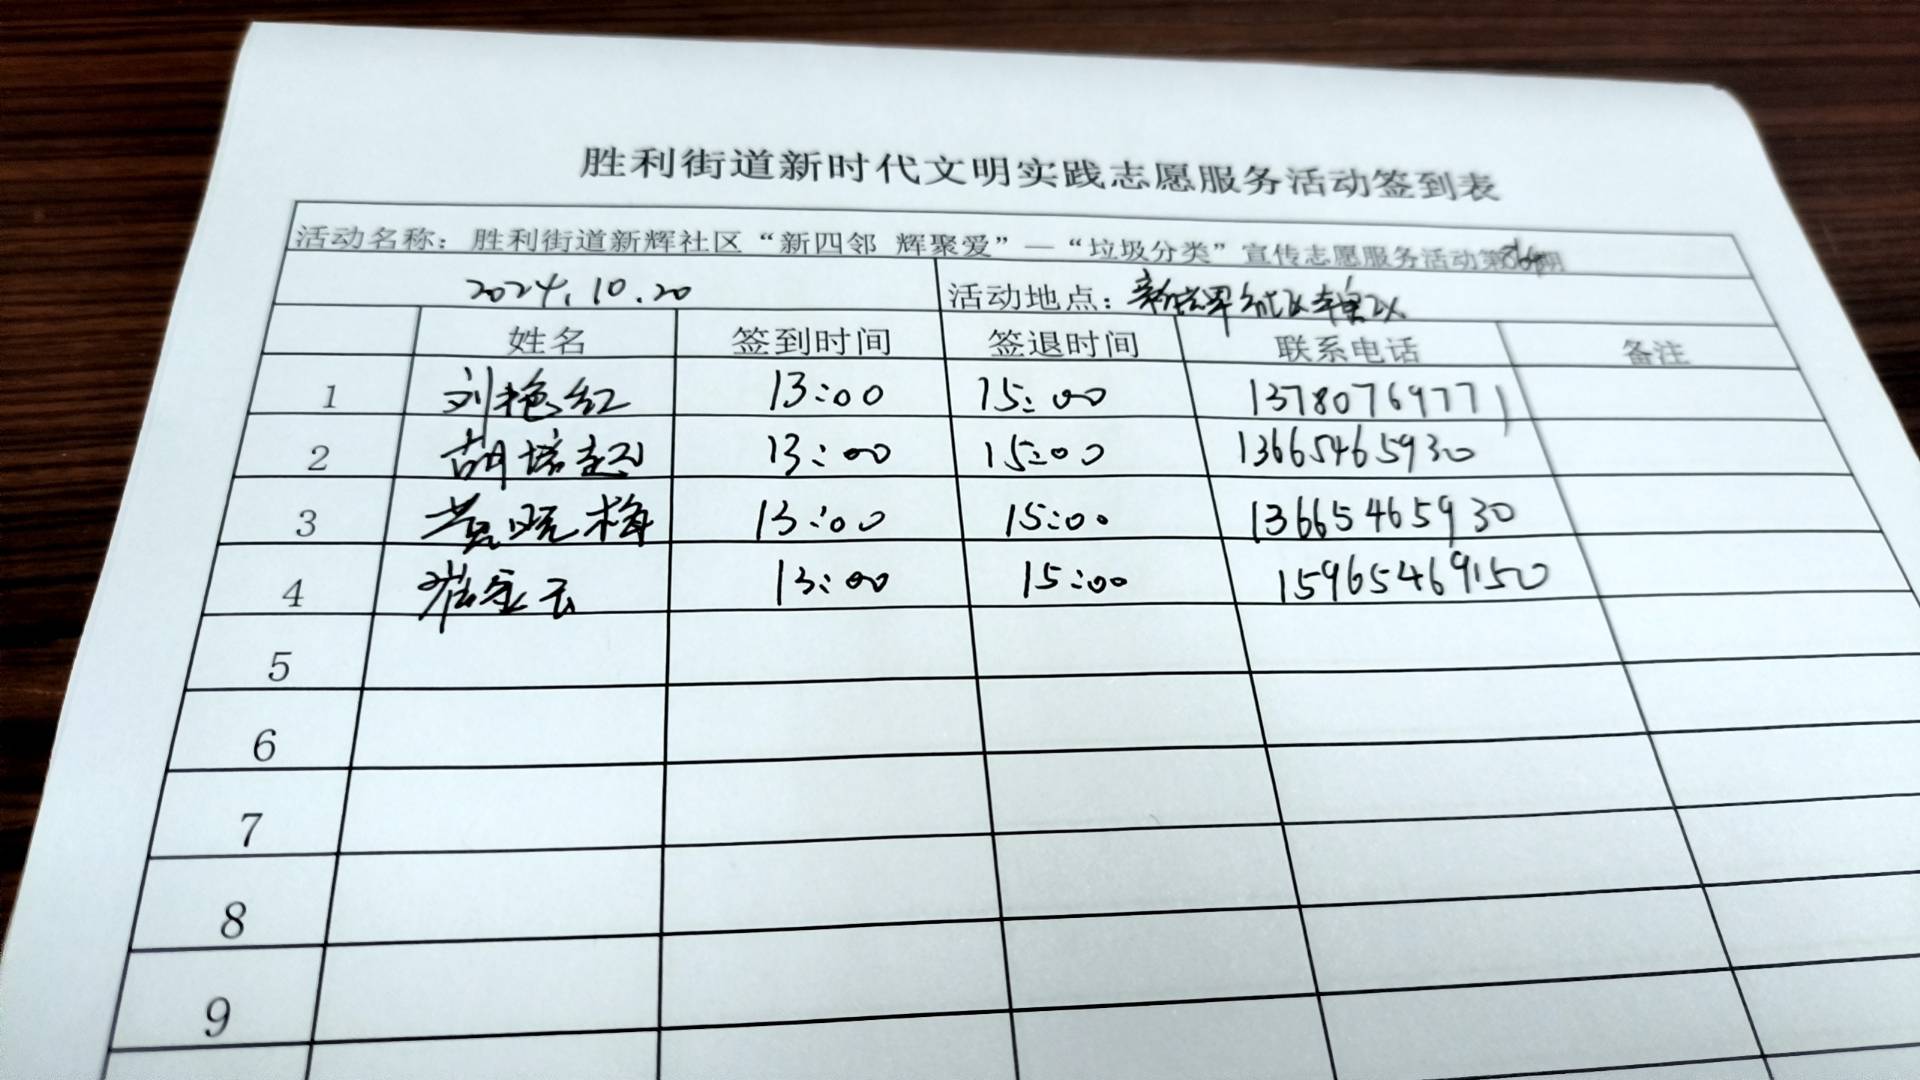 胜利街道新时代文明实践志愿服务活动签到表
活动名称：胜利街道新辉社区“新四邻 辉聚爱”—“垃圾分类”宣传志愿服务活动第期
2024.10.20 活动地点：新辉社区辖区
姓名 签到时间 签退时间 联系电话 备注
1 刘艳红 13:00 15:00 13780769771
2 胡培起 13:00 15:00 13665465930
3 黄晓梅 13:00 15:00 13665465930
4 崔金云 13:00 15:00 15965469150
5
6
7
8
9